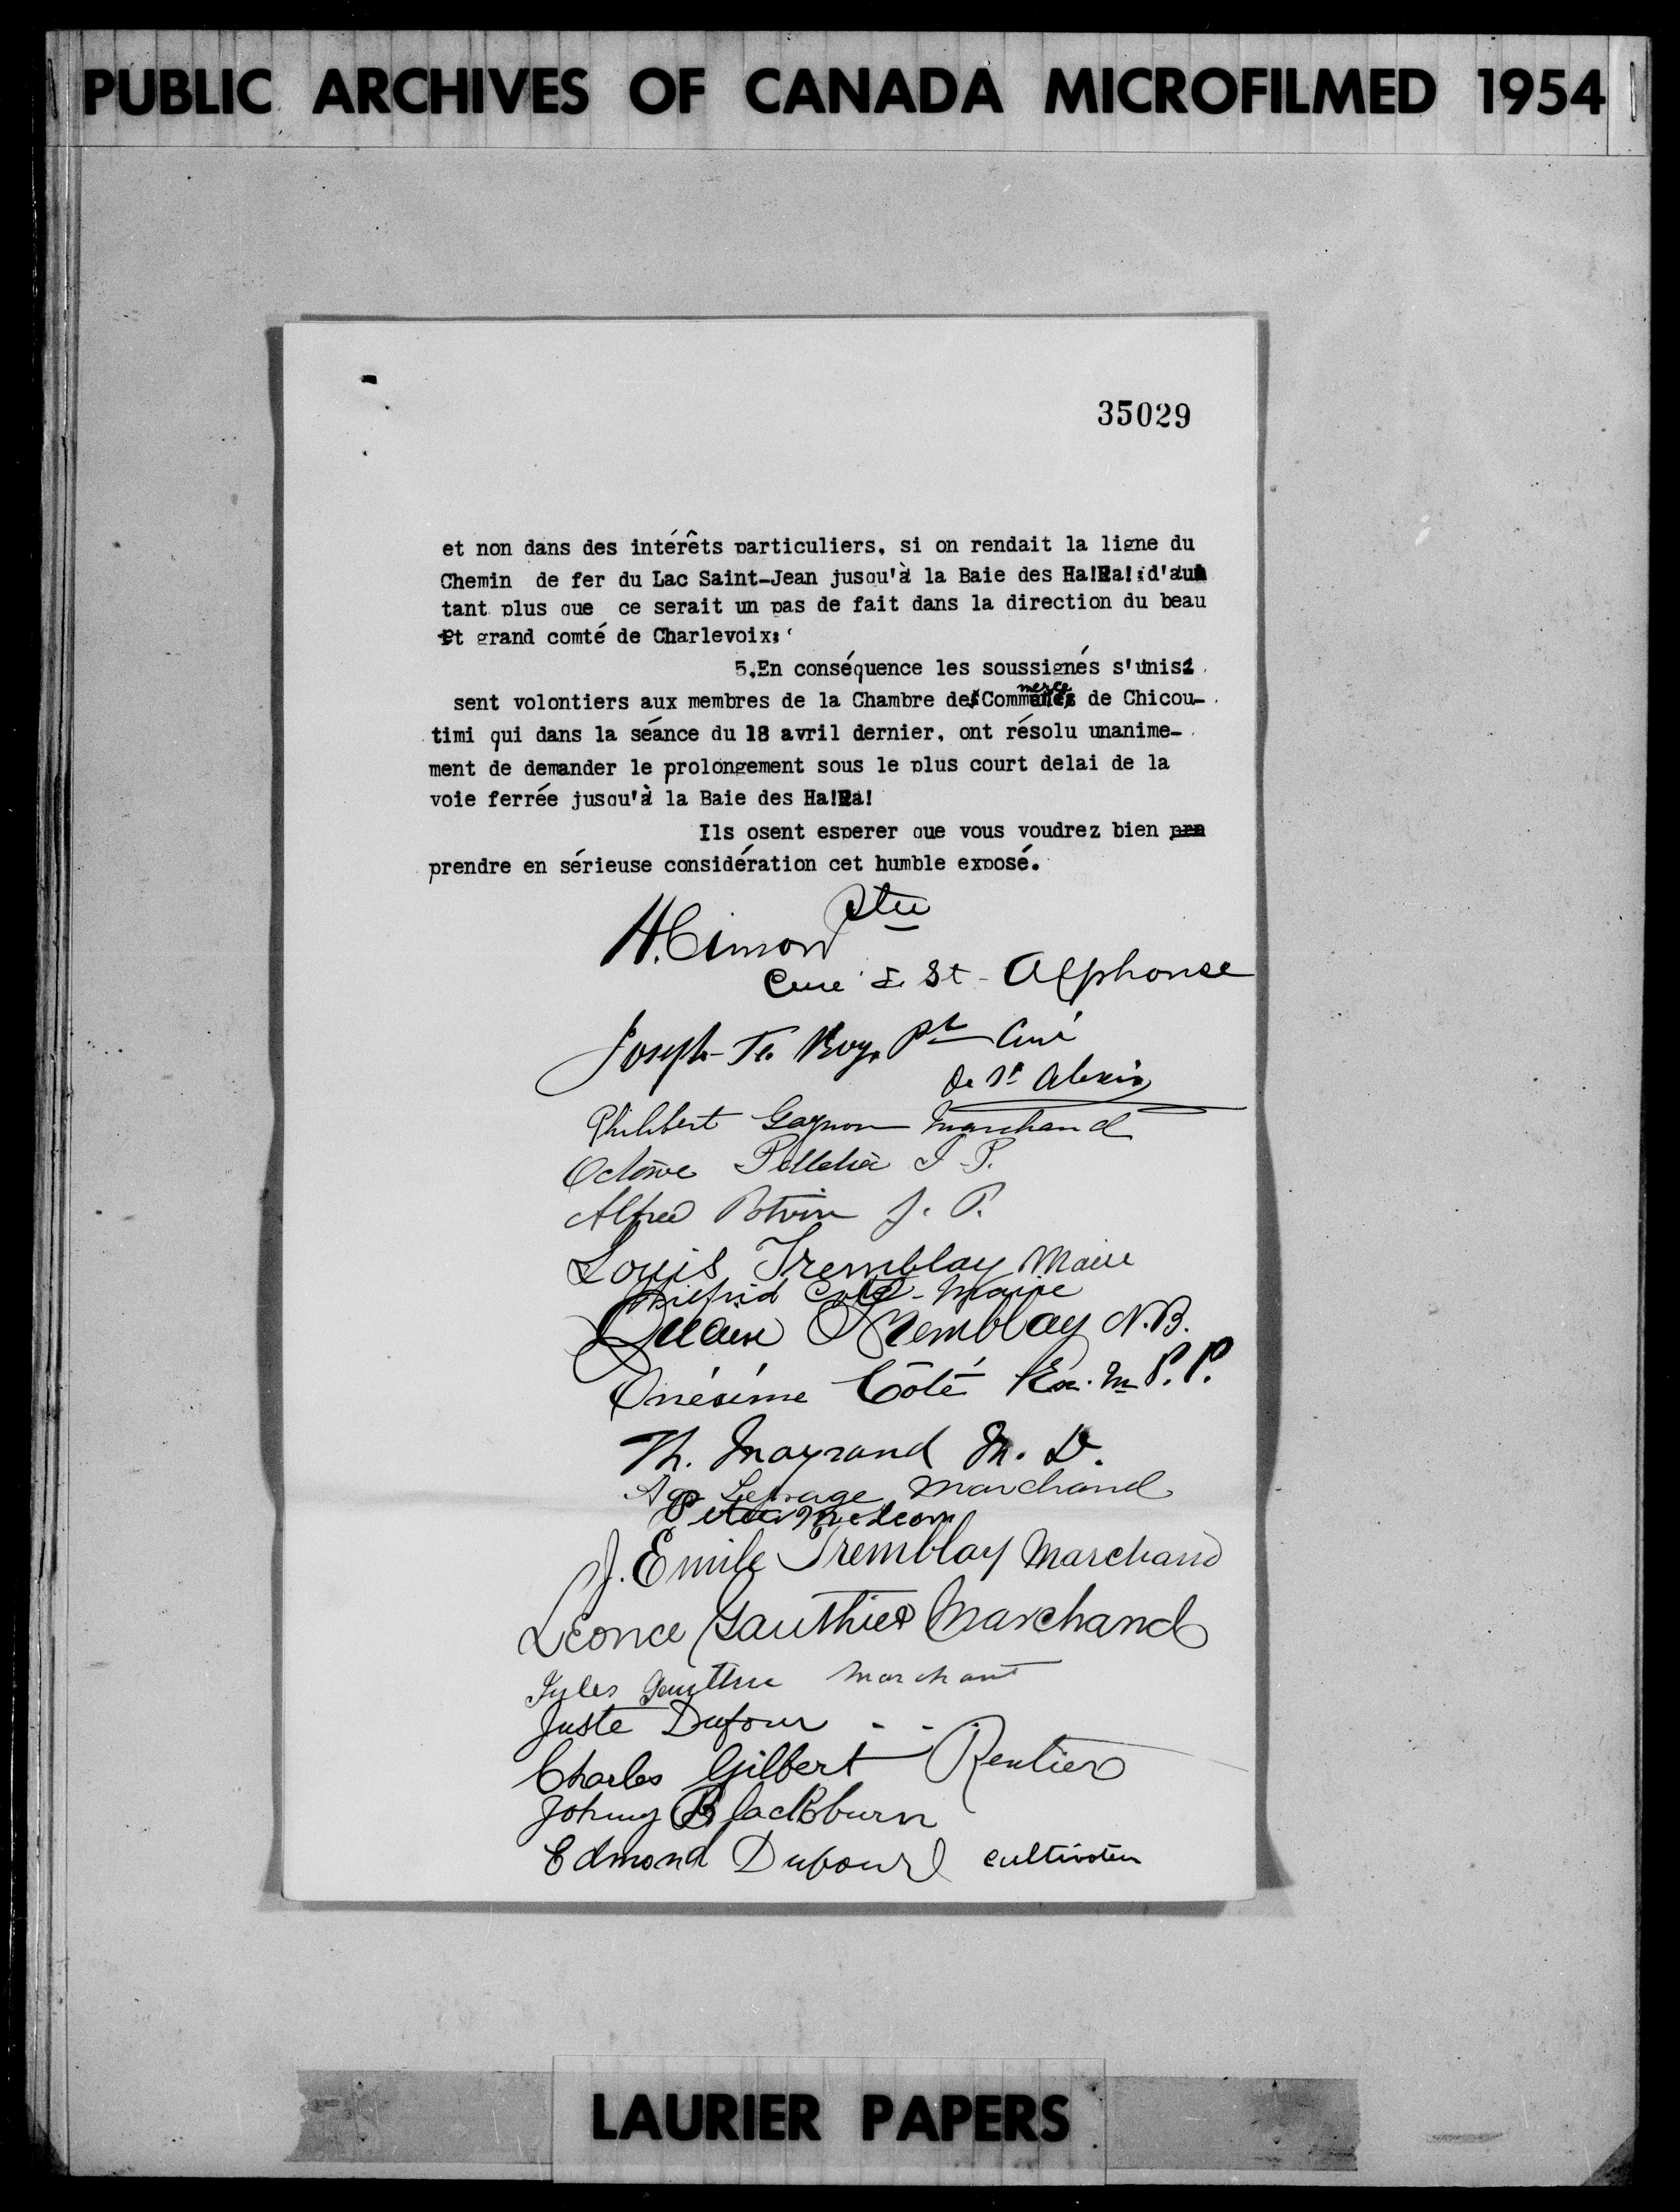 PUBLIC ARCHIVES OF CANADA MICROFILMED 1954
35029
et non dans des intérêts particuliers, si on rendait la ligne du
Chemin de fer du Lac Saint-Jean jusqu'à la Baie des Ha!Ha!:d'au
tant plus que ce serait un pas de fait dans la direction du beau
et grand comté de Charlevoix:
5.En conséquence les soussignés s'unis
sent volontiers aux membres de la Chambre de Commerce de Chicou-
timi qui dans la séance du 18 avril dernier, ont résolu unanime-
ment de demander le prolongement sous le plus court delai de la
voie ferrée jusqu'à la Baie des Ha!Ha!
Ils osent esperer que vous voudrez bien pre
prendre en sérieuse considération cet humble exposé.
H. Cimon Ptre
Curé de St-Alphonse
Joseph Roy Ptr Curé
de St Alexis
Philibert Gagnon Marchand
Octave Pelletier J.P.
Alfred Potvin J.P.
Louis Tremblay Maire
Wilfrid Coté - Maire
Tremblay N.B.
Onésime Côté Ex. M.P.P.
Th. Mayrand M.D.
Lepage Marchand
Peter McLean
J. Emile Tremblay Marchand
Léonce Gauthier Marchand
Jules Gauthier Marchant
Juste Dufour
Charles Gilbert Rentier
Johnny Blackburn
Edmond Dufour cultivateur
LAURIER PAPERS